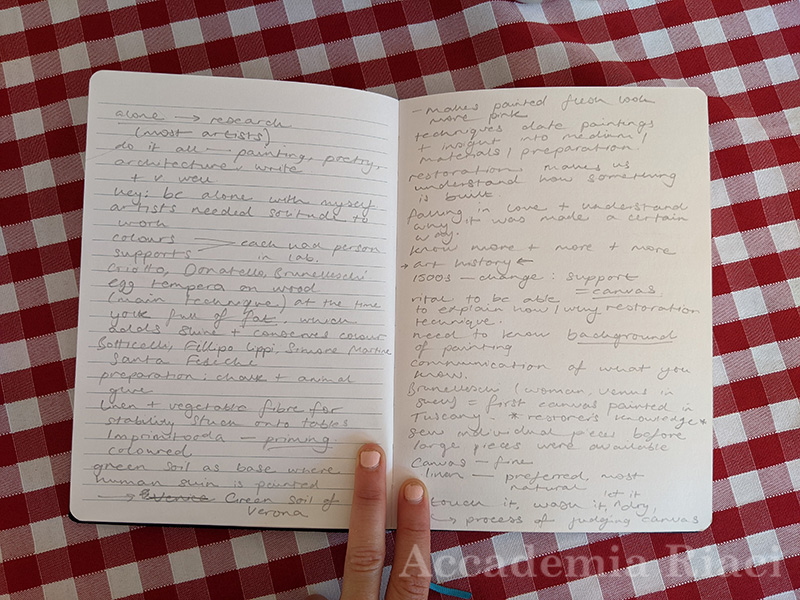 alone → research
(most artists)
do it all — painting, poetry,
architecture, write
+ v well
key: be alone with myself
artists needed solitude to
work
colours > each had person
supports in lab.
Giotto, Donatello, Brunelleschi
egg tempera on wood
(main technique) at the time
yolk full of fat, which
adds shine + conserves colour
Botticelli, Fillipo Lippi, Simone Martine
Santa
preparation: chalk + animal
glue
linen + vegetable fibre for
stability stuck onto tables
Imprimitooda — priming
coloured
green soil as base where
human skin is painted
→ Venice Green soil of
Verona
- makes painted flesh look
more pink
techniques date paintings
+ insight into medium/
materials/preparation
restoration makes us
understand how something
is built.
falling in love + understand
why it was made a certain
way.
know more + more + more
→ art history ←
1500s — change: support
= canvas
vital to be able
to explain how/why restoration
technique.
need to know background
of painting
communication of what you
know.
Brunelleschi (woman, venus in
shell) = first canvas painted in
Tuscany *restorer's knowledge*
sew individual pieces before
large pieces were available
Canvas — fine
linen — preferred, most
natural
touch it, wash it, let it dry,
→ process of judging canvas
Accademia Riaci